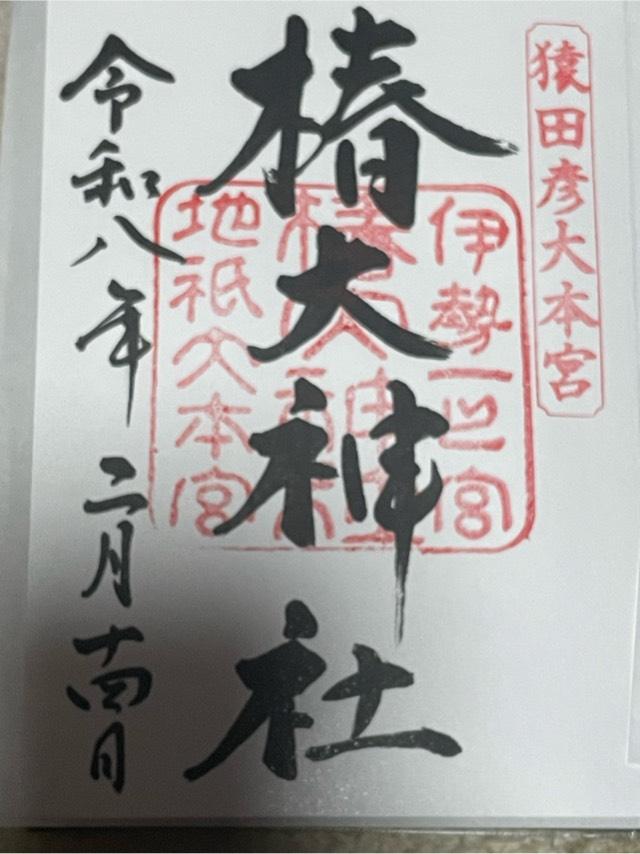 猿田彦大本宮
椿大神社
伊勢一之宮
椿大神社
地祇大本宮
令和八年二月十四日